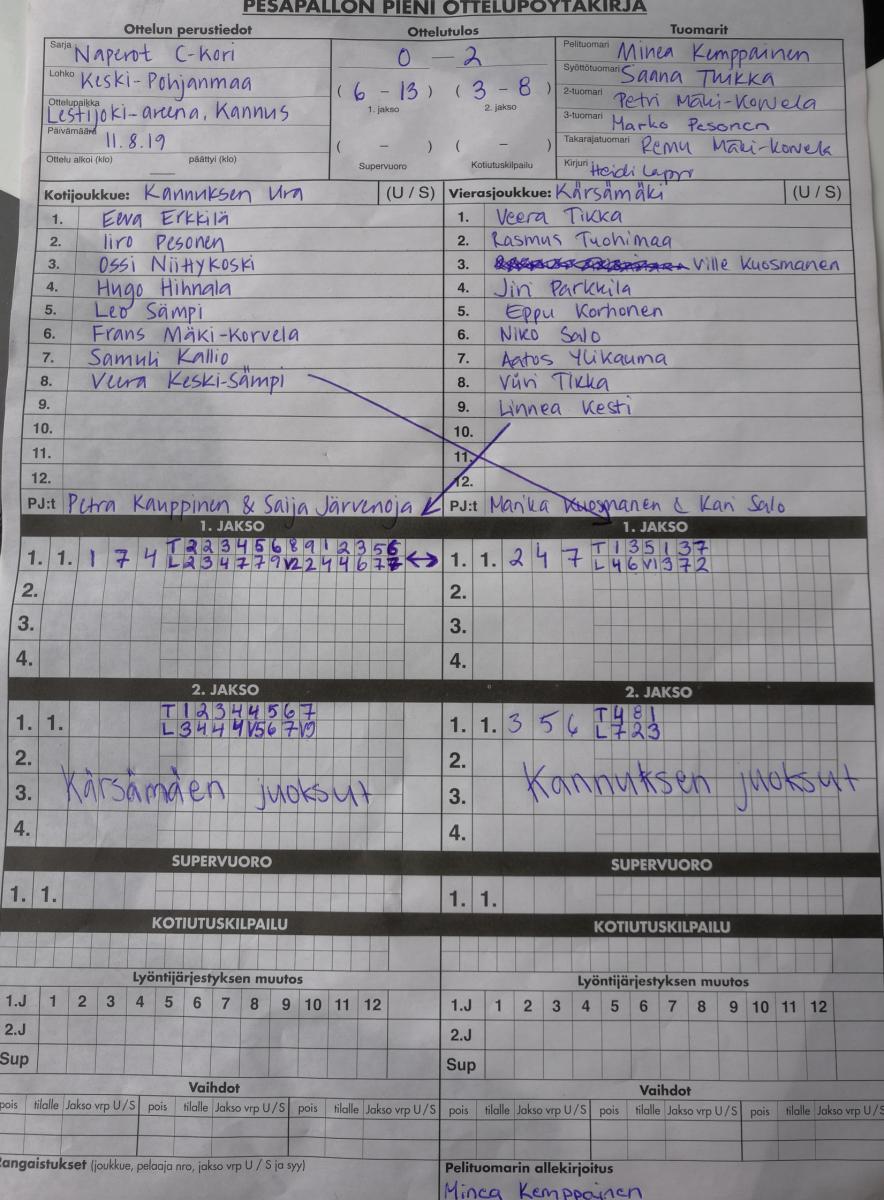 PESÄPALLON PIENI OTTELUPÖYTÄKIRJA
Ottelun perustiedot
Sarja Naperot C-Kori
Lohko Keski-Pohjanmaa
Ottelupaikka Lestijoki-areena, Kannus
Päivämäärä 11.8.19
Ottelu alkoi (klo) päättyi (klo)
Ottelutulos
0 – 2
( 6 – 13 ) ( 3 – 8 )
1. jakso 2. jakso
( – ) ( – )
Supervuoro Kotiutuskilpailu
Tuomarit
Pelituomari Minea Kemppainen
Syöttötuomari Saana Tuikka
2-tuomari Petri Mäki-Korvela
3-tuomari Marko Pesonen
Takarajatuomari Remu Mäki-Korvela
Kirjuri Heidi
Kotijoukkue: Kannuksen Ura (U / S)
1. Eeva Erkkilä
2. Iiro Pesonen
3. Ossi Niittykoski
4. Hugo Hihnala
5. Leo Sämpi
6. Frans Mäki-Korvela
7. Samuli Kallio
8. Veera Keski-Sämpi
9.
10.
11.
12.
PJ:t Petra Kauppinen & Saija Järvenoja
Vierasjoukkue: Kärsämäki (U / S)
1. Veera Tikka
2. Rasmus Tuohimaa
3. Ville Kuosmanen
4. Jiri Parkkila
5. Eppu Korhonen
6. Niko Salo
7. Aatos Ylikauma
8. Viiri Tikka
9. Linnea Kesti
10.
11.
12.
PJ:t Marika Kuosmanen & Kari Salo
1. JAKSO
1. 1. 1 7 4 T 2 2 3 4 5 6 8 9 1 2 3 5 6
L 2 3 4 7 7 9 V2 2 4 4 6 7 7
2.
3.
4.
1. JAKSO
1. 1. 2 4 7 T 1 3 5 1 3 7
L 4 6 V1 3 7 2
2.
3.
4.
2. JAKSO
1. 1. T 1 2 3 4 4 5 6 7
L 3 4 4 4 V5 6 7 V9
2.
3. Kärsämäen juoksut
4.
2. JAKSO
1. 1. 3 5 6 T 4 8 1
L 7 2 3
2.
3. Kannuksen juoksut
4.
SUPERVUORO
1. 1.
SUPERVUORO
1. 1.
KOTIUTUSKILPAILU
KOTIUTUSKILPAILU
Lyöntijärjestyksen muutos
1.J 1 2 3 4 5 6 7 8 9 10 11 12
2.J
Sup
Lyöntijärjestyksen muutos
1.J 1 2 3 4 5 6 7 8 9 10 11 12
2.J
Sup
Vaihdot
pois tilalle Jakso vrp U / S pois tilalle Jakso vrp U / S pois tilalle Jakso vrp U / S
Vaihdot
pois tilalle Jakso vrp U / S pois tilalle Jakso vrp U / S pois tilalle Jakso vrp U / S
Rangaistukset (joukkue, pelaaja nro, jakso vrp U / S ja syy)
Pelituomarin allekirjoitus
Minea Kemppainen